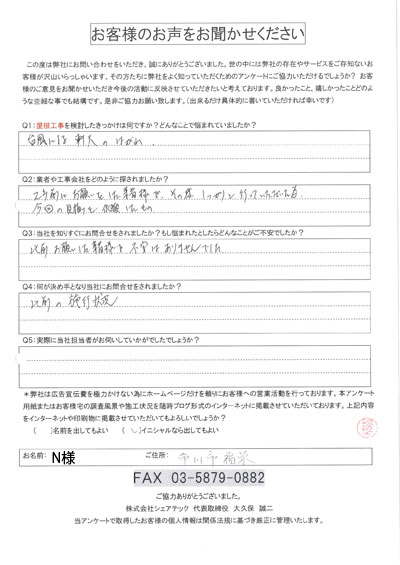 お客様のお声をお聞かせください
この度は弊社にお問い合わせをいただき、誠にありがとうございました。世の中には弊社の存在やサービスをご存知ないお
客様が沢山いらっしゃいます。その方たちに弊社をよく知っていただくためのアンケートにご協力いただけるでしょうか? お客
様のご意見をお聞かせいただき今後の活動に反映させていただきたいと考えております。良かったこと、嬉しかったことどのよ
うな些細な事でも結構です。是非ご協力お願い致します。(出来るだけ具体的に書いていただければ幸いです)
Q1:屋根工事を検討したきっかけは何ですか?どんなことで悩まれていましたか?
台風による 軒天 の はがれ.
Q2:業者や工事会社をどのように探されましたか?
2年前に お願いをした業者様で、その際 しっかりと行っていただいた為.
今回の 見積りを 依頼したもの
Q3:当社を知りすぐにお問合せをされましたか? もし悩まれたとしたらどんなことがご不安でしたか?
以前 お願いした業者様で 不安は ありませんでした
Q4:何が決め手となり当社にお問合せをされましたか?
以前 の 施行状況
Q5:実際に当社担当者がお伺いしていかがでしたでしょうか?
*弊社は広告宣伝費を極力かけない為にホームページだけを頼りにお客様への営業活動を行っております。本アンケート
用紙またはお客様宅の調査風景や施工状況を随時ブログ形式のインターネットに掲載させていただいております。上記内容
をインターネットや印刷物に掲載させていただいてもよろしいでしょうか?
( )名前を出してもよい (✓)イニシャルなら出してもよい
お名前: N様 ご住所: 市川市 稲荷
FAX 03-5879-0882
ご協力ありがとうございました。
株式会社シェアテック 代表取締役 大久保 誠二
当アンケートで取得したお客様の個人情報は関係法規に基づき厳正に管理いたします。